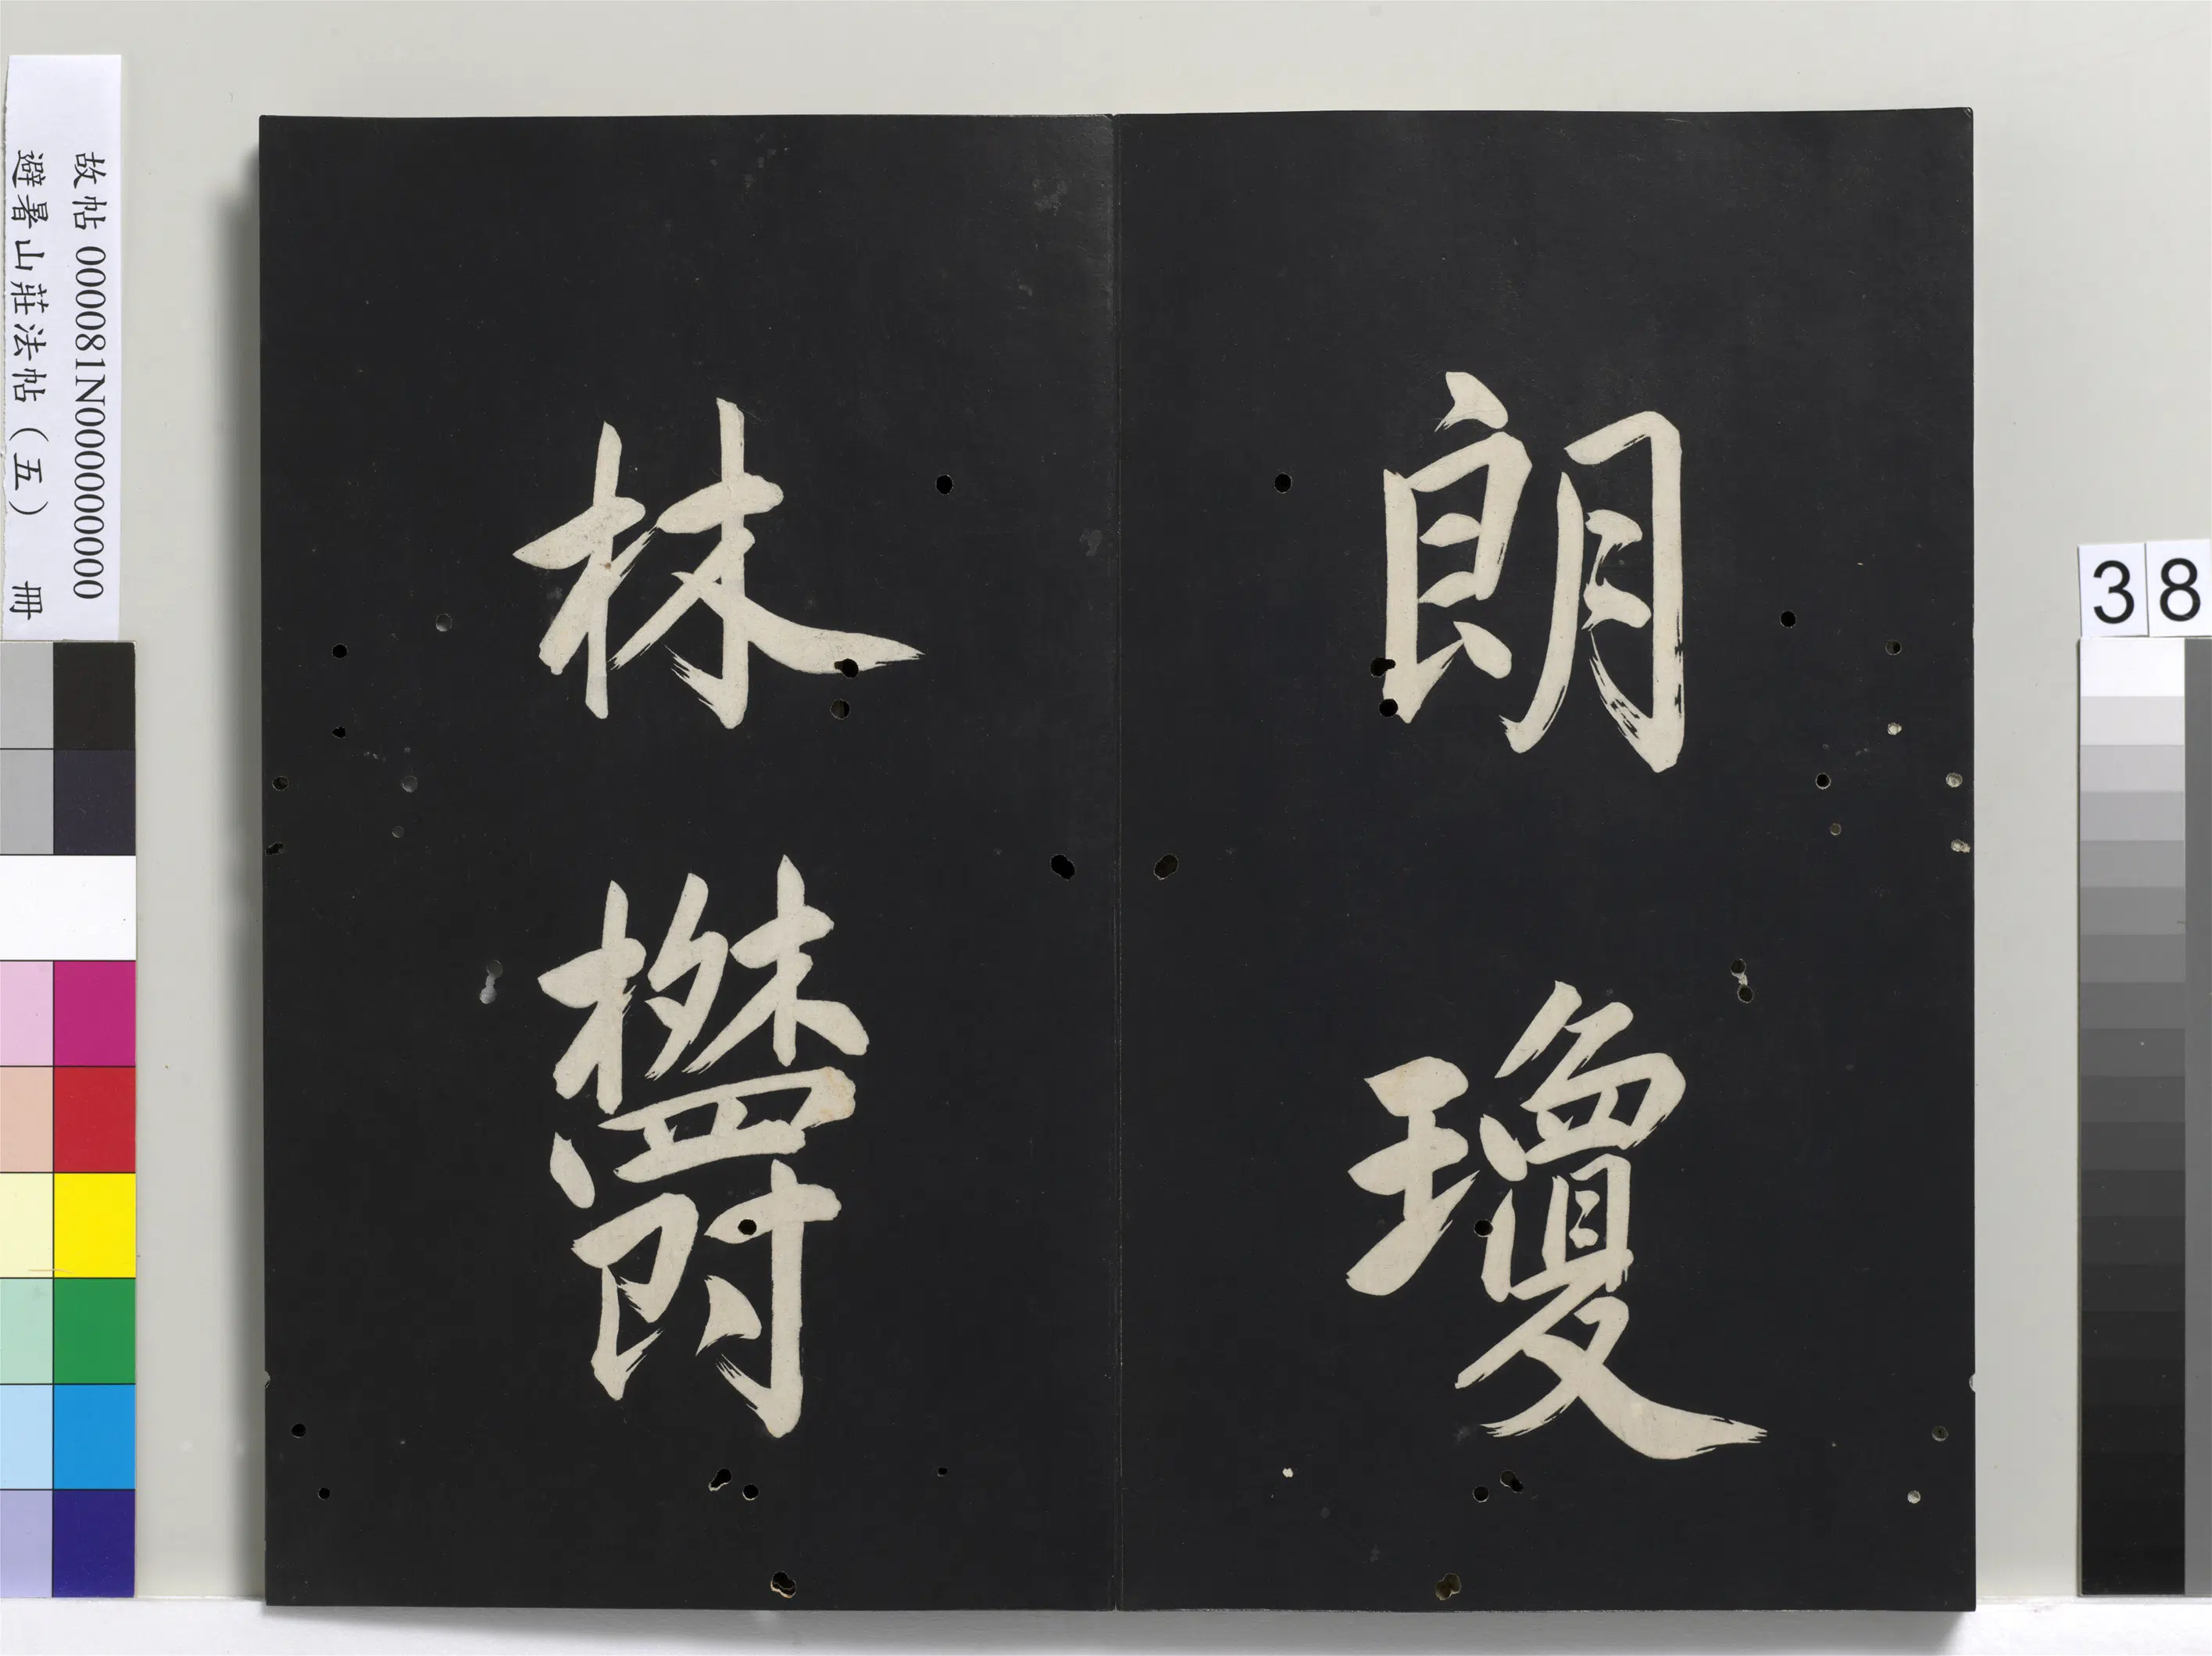 朗瓊
林欝
故帖 000081N000000000
避暑山莊法帖（五） 冊
38